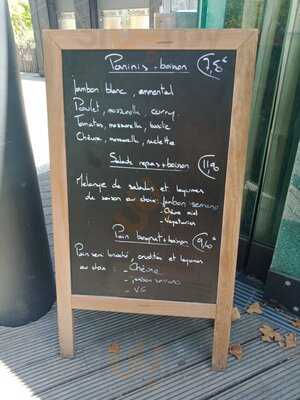 Paninis + boisson 7,8€
Jambon blanc, emmental
Poulet, mozzarella, curry
Tomates, mozzarella, basilic
Chèvre, mozzarella, raclette
Salade repas + boisson 11,9€
Mélange de salades et légumes
de saison au choix: Jambon serrano
- Chèvre miel
- Végétarien
Pain + boisson 9,6€
Pain crudités et légumes
au choix: - Chèvre
- jambon serrano
- VG